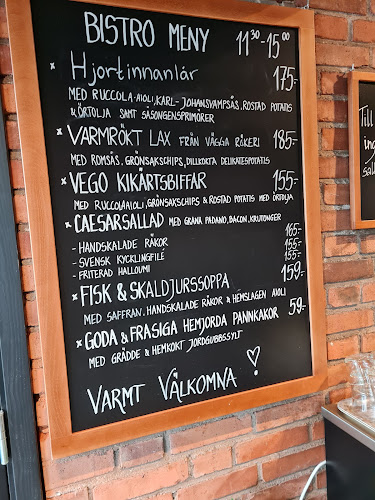 BISTRO MENY 11³⁰-15⁰⁰
* Hjortinnanlår 175-
MED RUCCOLA-AIOLI, KARL-JOHANSVAMPSÅS, ROSTAD POTATIS
& ÖRTOLJA SAMT SÄSONGENSPRIMÖRER
* VARMRÖKT LAX FRÅN VÄGGA RÖKERI 185-
MED ROMSÅS, GRÖNSAKSCHIPS, DILLKOKTA DELIKATESSPOTATIS
* VEGO KIKÄRTSBIFFAR 155-
MED RUCCOLAAIOLI, GRÖNSAKSCHIPS & ROSTAD POTATIS MED ÖRTOLJA
* CAESARSALLAD MED GRANA PADANO, BACON, KRUTONGER
- HANDSKALADE RÄKOR 165-
- SVENSK KYCKLINGFILÉ 155-
- FRITERAD HALLOUMI 155-
* FISK & SKALDJURSSOPPA 159-
MED SAFFRAN, HANDSKALADE RÄKOR & HEMSLAGEN AIOLI
* GODA & FRASIGA HEMJORDA PANNKAKOR 59-
MED GRÄDDE & HEMKOKT JORDGUBBSSYLT
VARMT VÄLKOMNA!
Till